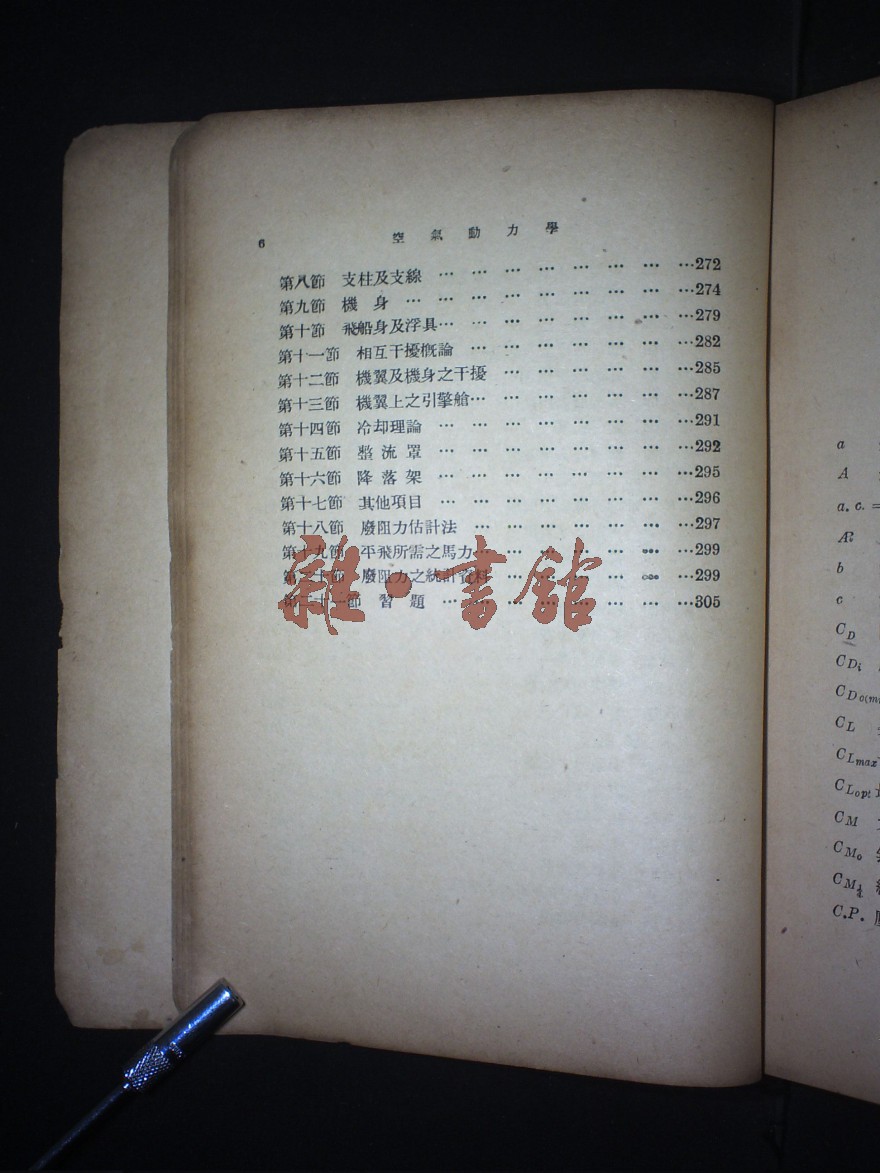 6 空氣動力學
第八節 支柱及支線 … … … … … … … …272
第九節 機身 … … … … … … … … …274
第十節 飛船身及浮具… … … … … … … …279
第十一節 相互干擾概論 … … … … … … …282
第十二節 機翼及機身之干擾 … … … … … …285
第十三節 機翼上之引擎艙… … … … … … …287
第十四節 冷却理論 … … … … … … … …291
第十五節 整流罩 … … … … … … … …292
第十六節 降落架 … … … … … … … …295
第十七節 其他項目 … … … … … … … …296
第十八節 廢阻力估計法 … … … … … … …297
第十九節 平飛所需之馬力… … … … … … …299
第二十節 廢阻力之統計資料 … … … … … …299
第二十一節 習題 … … … … … … … …305
雜·書館
a
A
a. c. =
Æ
b
c
C_D
C_Di
C_Do(m
C_L
C_Lmax
C_Lopt
C_M
C_Mo
C_M
C.P.